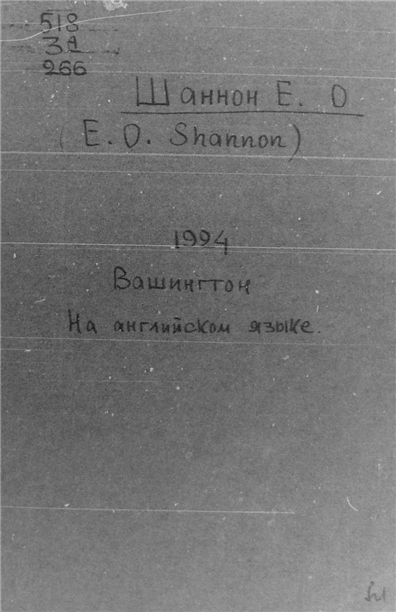 518
3а
266
Шаннон Е. О
(E. O. Shannon)
1994
Вашингтон
На английском языке.